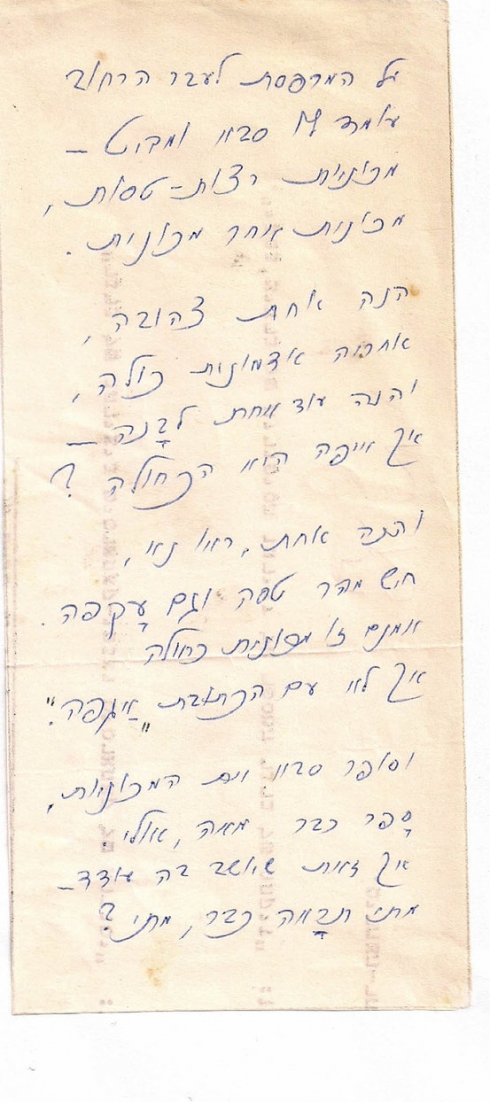 על המרפסת לעבר הרחוב
עומד לו סבא ומביט –
מכוניות רצות-טסות,
מכונית אחר מכונית.
הנה אחת צהובה,
אחרת אדמונית כולה,
והנה עוד אחת לבָנה –
אך אייפה היא הכחולה?
והנה אחת, ראו נא,
חיש מהר טסה וגם עָקפה
אומנם זו מכונית כחולה
אך לא עם הכתובת "איגפה".
וסופר סבא את המכוניות,
סָפר כבר מאה, אולי.
אך זאת שיושב בה עודד –
מתי תבָוא כבר, מתי?